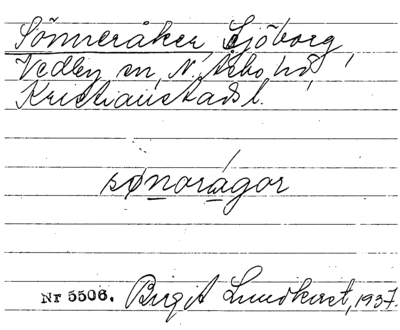 Sönneråker, Sjöborg,
Vedby sn, N. Åsbo hd,
Kristianstads l.
sønorágor
Nr 5506. Birgit Lundkvist, 1937.